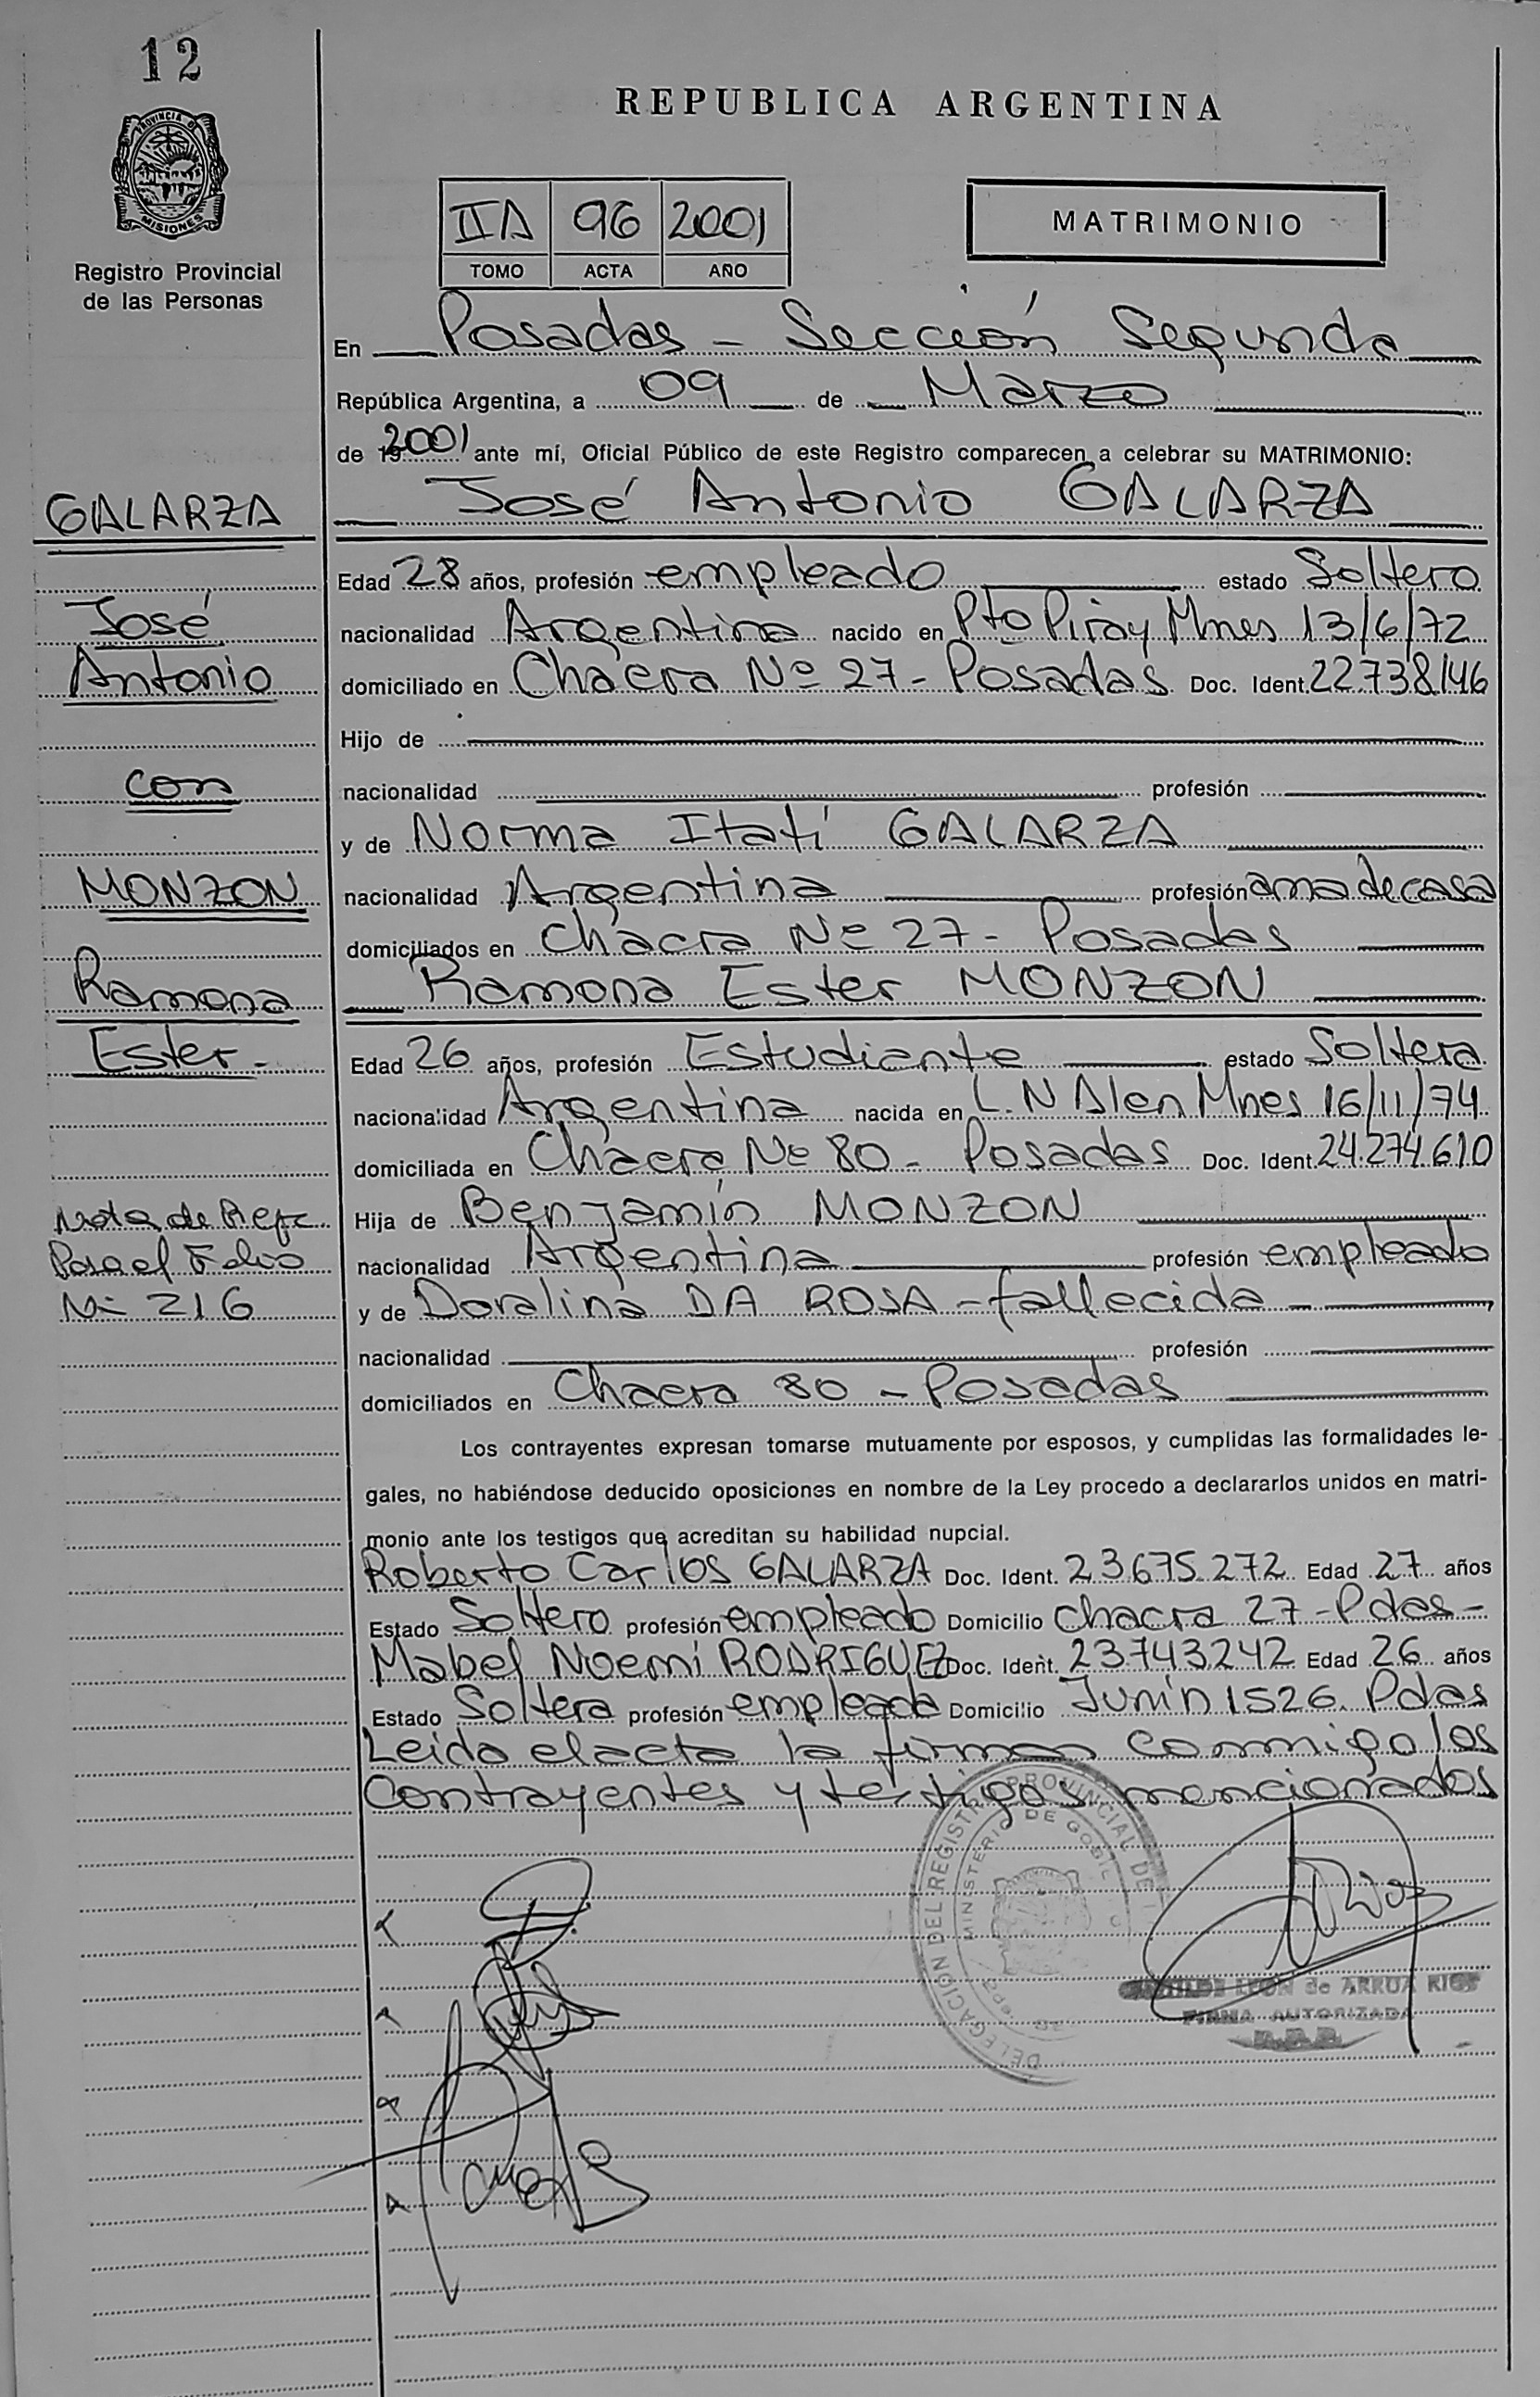 12
PROVINCIA DE
MISIONES
Registro Provincial
de las Personas
REPUBLICA ARGENTINA
IIA 96 2001
TOMO ACTA AÑO
MATRIMONIO
En Posadas - Sección Segunda
República Argentina, a 09 de Marzo
de 2001 ante mí, Oficial Público de este Registro comparecen a celebrar su MATRIMONIO:
José Antonio GALARZA
Edad 28 años, profesión empleado estado Soltero
nacionalidad Argentina nacido en Pto Piray Mnes 13/6/72
domiciliado en Chacra Nº 27 - Posadas Doc. Ident. 22.738.146
Hijo de
nacionalidad profesión
y de Norma Itatí GALARZA
nacionalidad Argentina profesión ama de casa
domiciliados en Chacra Nº 27 - Posadas
Ramona Ester MONZON
Edad 26 años, profesión Estudiante estado Soltera
nacionalidad Argentina nacida en L.N Alen Mnes 16/11/74
domiciliada en Chacra Nº 80 - Posadas Doc. Ident. 24.274.610
Hija de Benjamín MONZON
nacionalidad Argentina profesión empleado
y de Doralina DA ROSA - fallecida -
nacionalidad profesión
domiciliados en Chacra 80 - Posadas
Los contrayentes expresan tomarse mutuamente por esposos, y cumplidas las formalidades le-
gales, no habiéndose deducido oposiciones en nombre de la Ley procedo a declararlos unidos en matri-
monio ante los testigos que acreditan su habilidad nupcial.
Roberto Carlos GALARZA Doc. Ident. 23.675.272 Edad 27 años
Estado Soltero profesión empleado Domicilio chacra 27 - Pdas -
Mabel Noemi RODRIGUEZ Doc. Ident. 23743242 Edad 26 años
Estado Soltera profesión empleada Domicilio Junín 1526. Pdas
Leida el acta la firman conmigo los
contrayentes y testigos mencionados
GALARZA
José
Antonio
con
MONZON
Ramona
Ester -
Nota de Refc
Pasa el Folio
Nº 216
DELEGACION DEL REGISTRO PROVINCIAL DE
MINISTERIO DE GOBIE
LEON de ARRUA RIOS
FIRMA AUTORIZADA